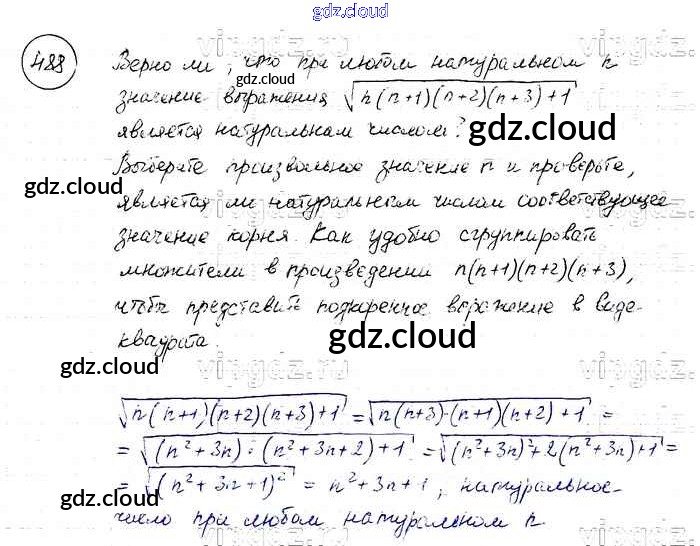 gdz.cloud
488 Верно ли, что при любом натуральном n
значение выражения √n(n+1)(n+2)(n+3)+1
является натуральным числом?
Выберете произвольное значение n и проверьте,
является ли натуральным числом соответствующее
значение корня. Как удобно сгруппировать
множители в произведении n(n+1)(n+2)(n+3),
чтобы представить подкоренное выражение в виде
квадрата.
√n(n+1)(n+2)(n+3)+1 = √n(n+3)·(n+1)(n+2)+1 =
= √(n²+3n)·(n²+3n+2)+1 = √(n²+3n)²+2(n²+3n)+1 =
= √(n²+3n+1)² = n²+3n+1, натуральное
число при любом натуральном n
gdz.cloud
gdz.cloud
gdz.cloud
gdz.cloud
gdz.cloud
gdz.cloud
gdz.cloud
gdz.cloud
vipgdz.ru
vipgdz.ru